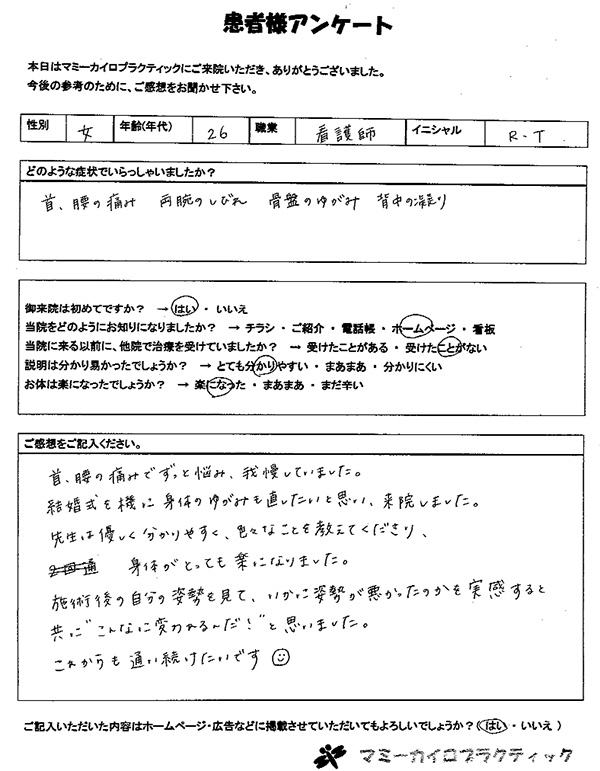 患者様アンケート
本日はマミーカイロプラクティックにご来院いただき、ありがとうございました。
今後の参考のために、ご感想をお聞かせ下さい。
性別 女 年齢(年代) 26 職業 看護師 イニシャル R・T
どのような症状でいらっしゃいましたか？
首、腰の痛み 両腕のしびれ 骨盤のゆがみ 背中の凝り
御来院は初めてですか？ → はい ・ いいえ
当院をどのようにお知りになりましたか？ → チラシ ・ ご紹介 ・ 電話帳 ・ ホームページ ・ 看板
当院に来る以前に、他院で治療を受けていましたか？ → 受けたことがある ・ 受けたことがない
説明は分かり易かったでしょうか？ → とても分かりやすい ・ まあまあ ・ 分かりにくい
お体は楽になったでしょうか？ → 楽になった ・ まあまあ ・ まだ辛い
ご感想をご記入ください。
首、腰の痛みでずっと悩み、我慢していました。
結婚式を機に身体のゆがみも直したいと思い、来院しました。
先生は優しく分かりやすく、色々なことを教えてくださり、
2回通 身体がとっても楽になりました。
施術後の自分の姿勢を見て、いかに姿勢が悪かったのかを実感すると
共に"こんなに変われるんだ！"と思いました。
これからも通い続けたいです☺
ご記入いただいた内容はホームページ・広告などに掲載させていただいてもよろしいでしょうか？（はい ・ いいえ ）
マミーカイロプラクティック